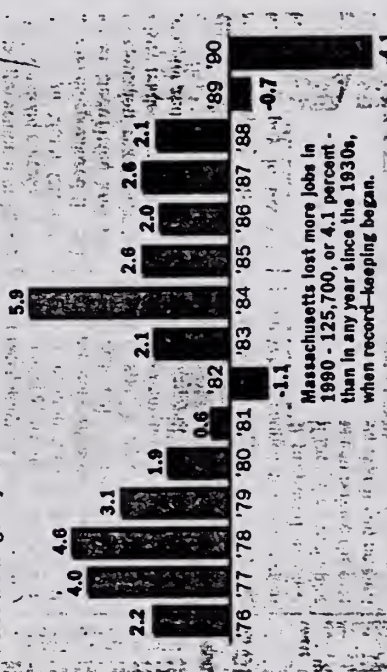 5.9
4.6
4.0
3.1
2.6
2.6
2.2
2.1
2.0
2.1
1.9
0.6
'76 '77 '78 '79 '80 '81 '82 '83 '84 '85 '86 '87 '88 '89 '90
-0.7
-1.1
Massachusetts lost more jobs in
1990 - 125,700, or 4.1 percent -
than in any year since the 1930s,
when record-keeping began.